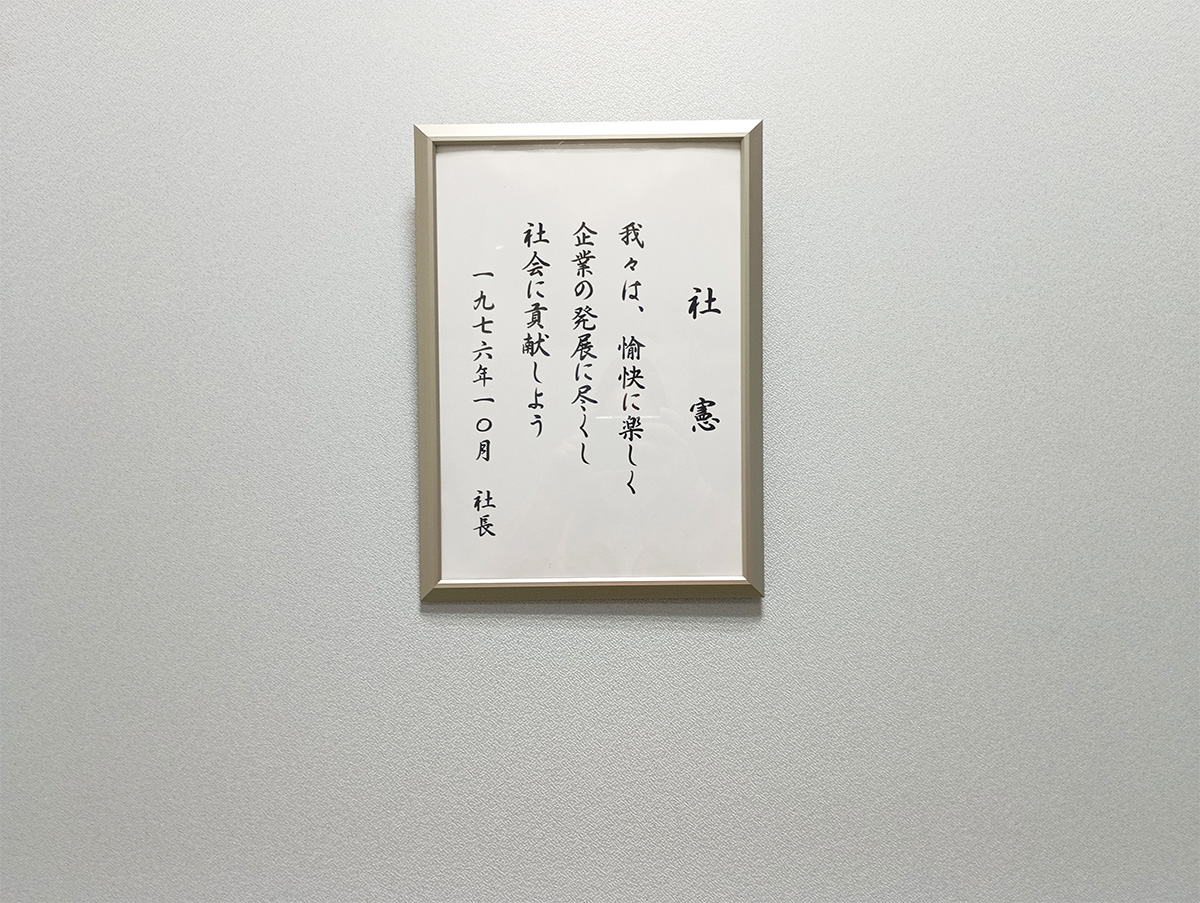 社 憲
我々は、愉快に楽しく
企業の発展に尽くし
社会に貢献しよう
一九七六年一〇月 社長